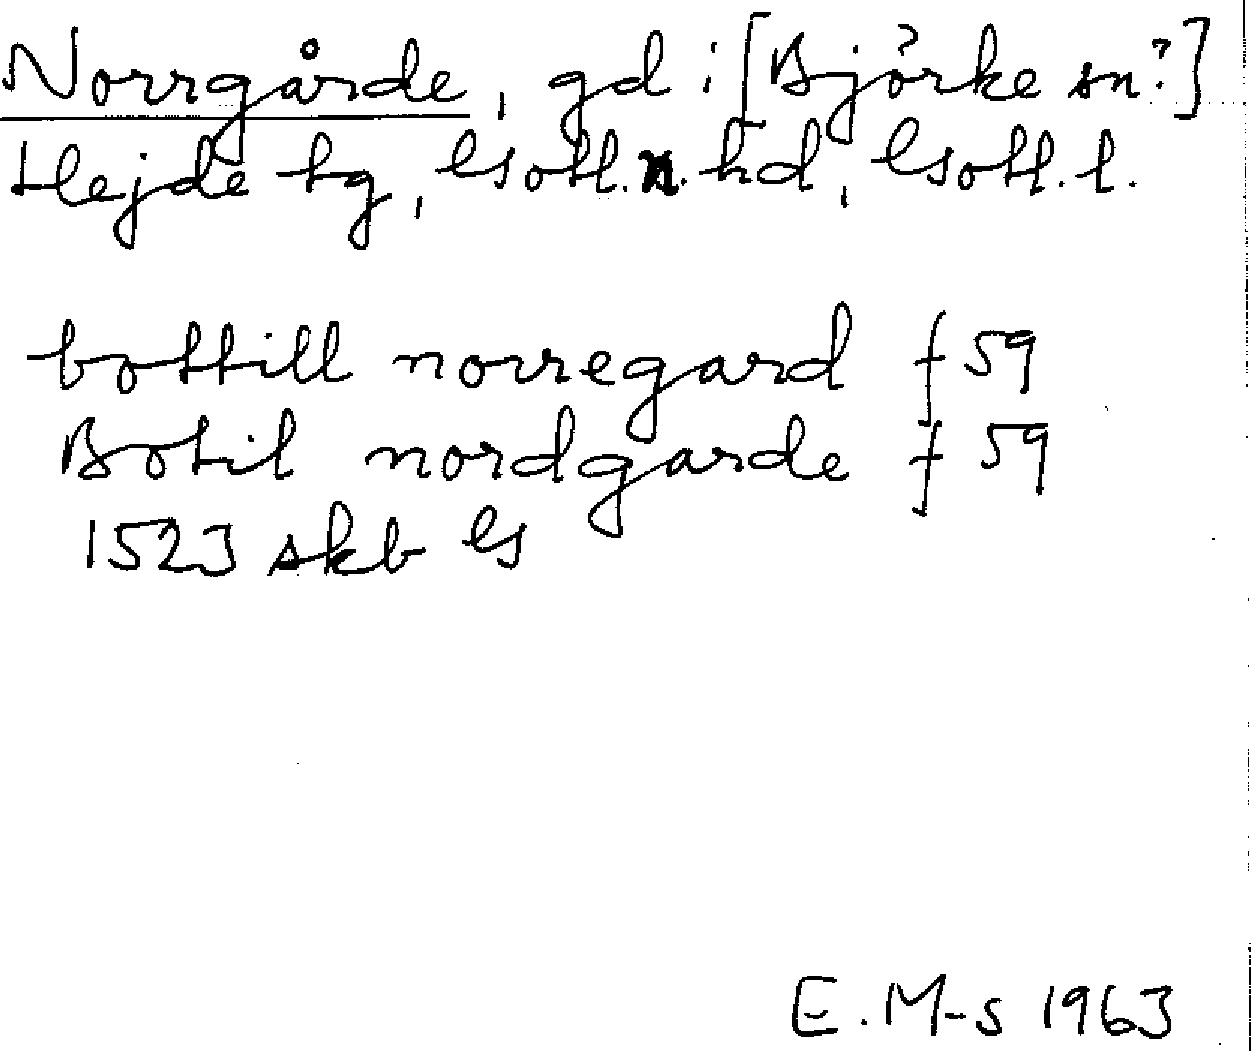 Norrgårde, gd i [Björke sn?]
Hejde tg, Gotl. n. hd, Gotl. l.
bottill norregard f 59
Botil nordgarde f 59
1523 skb G
E. M-s 1963